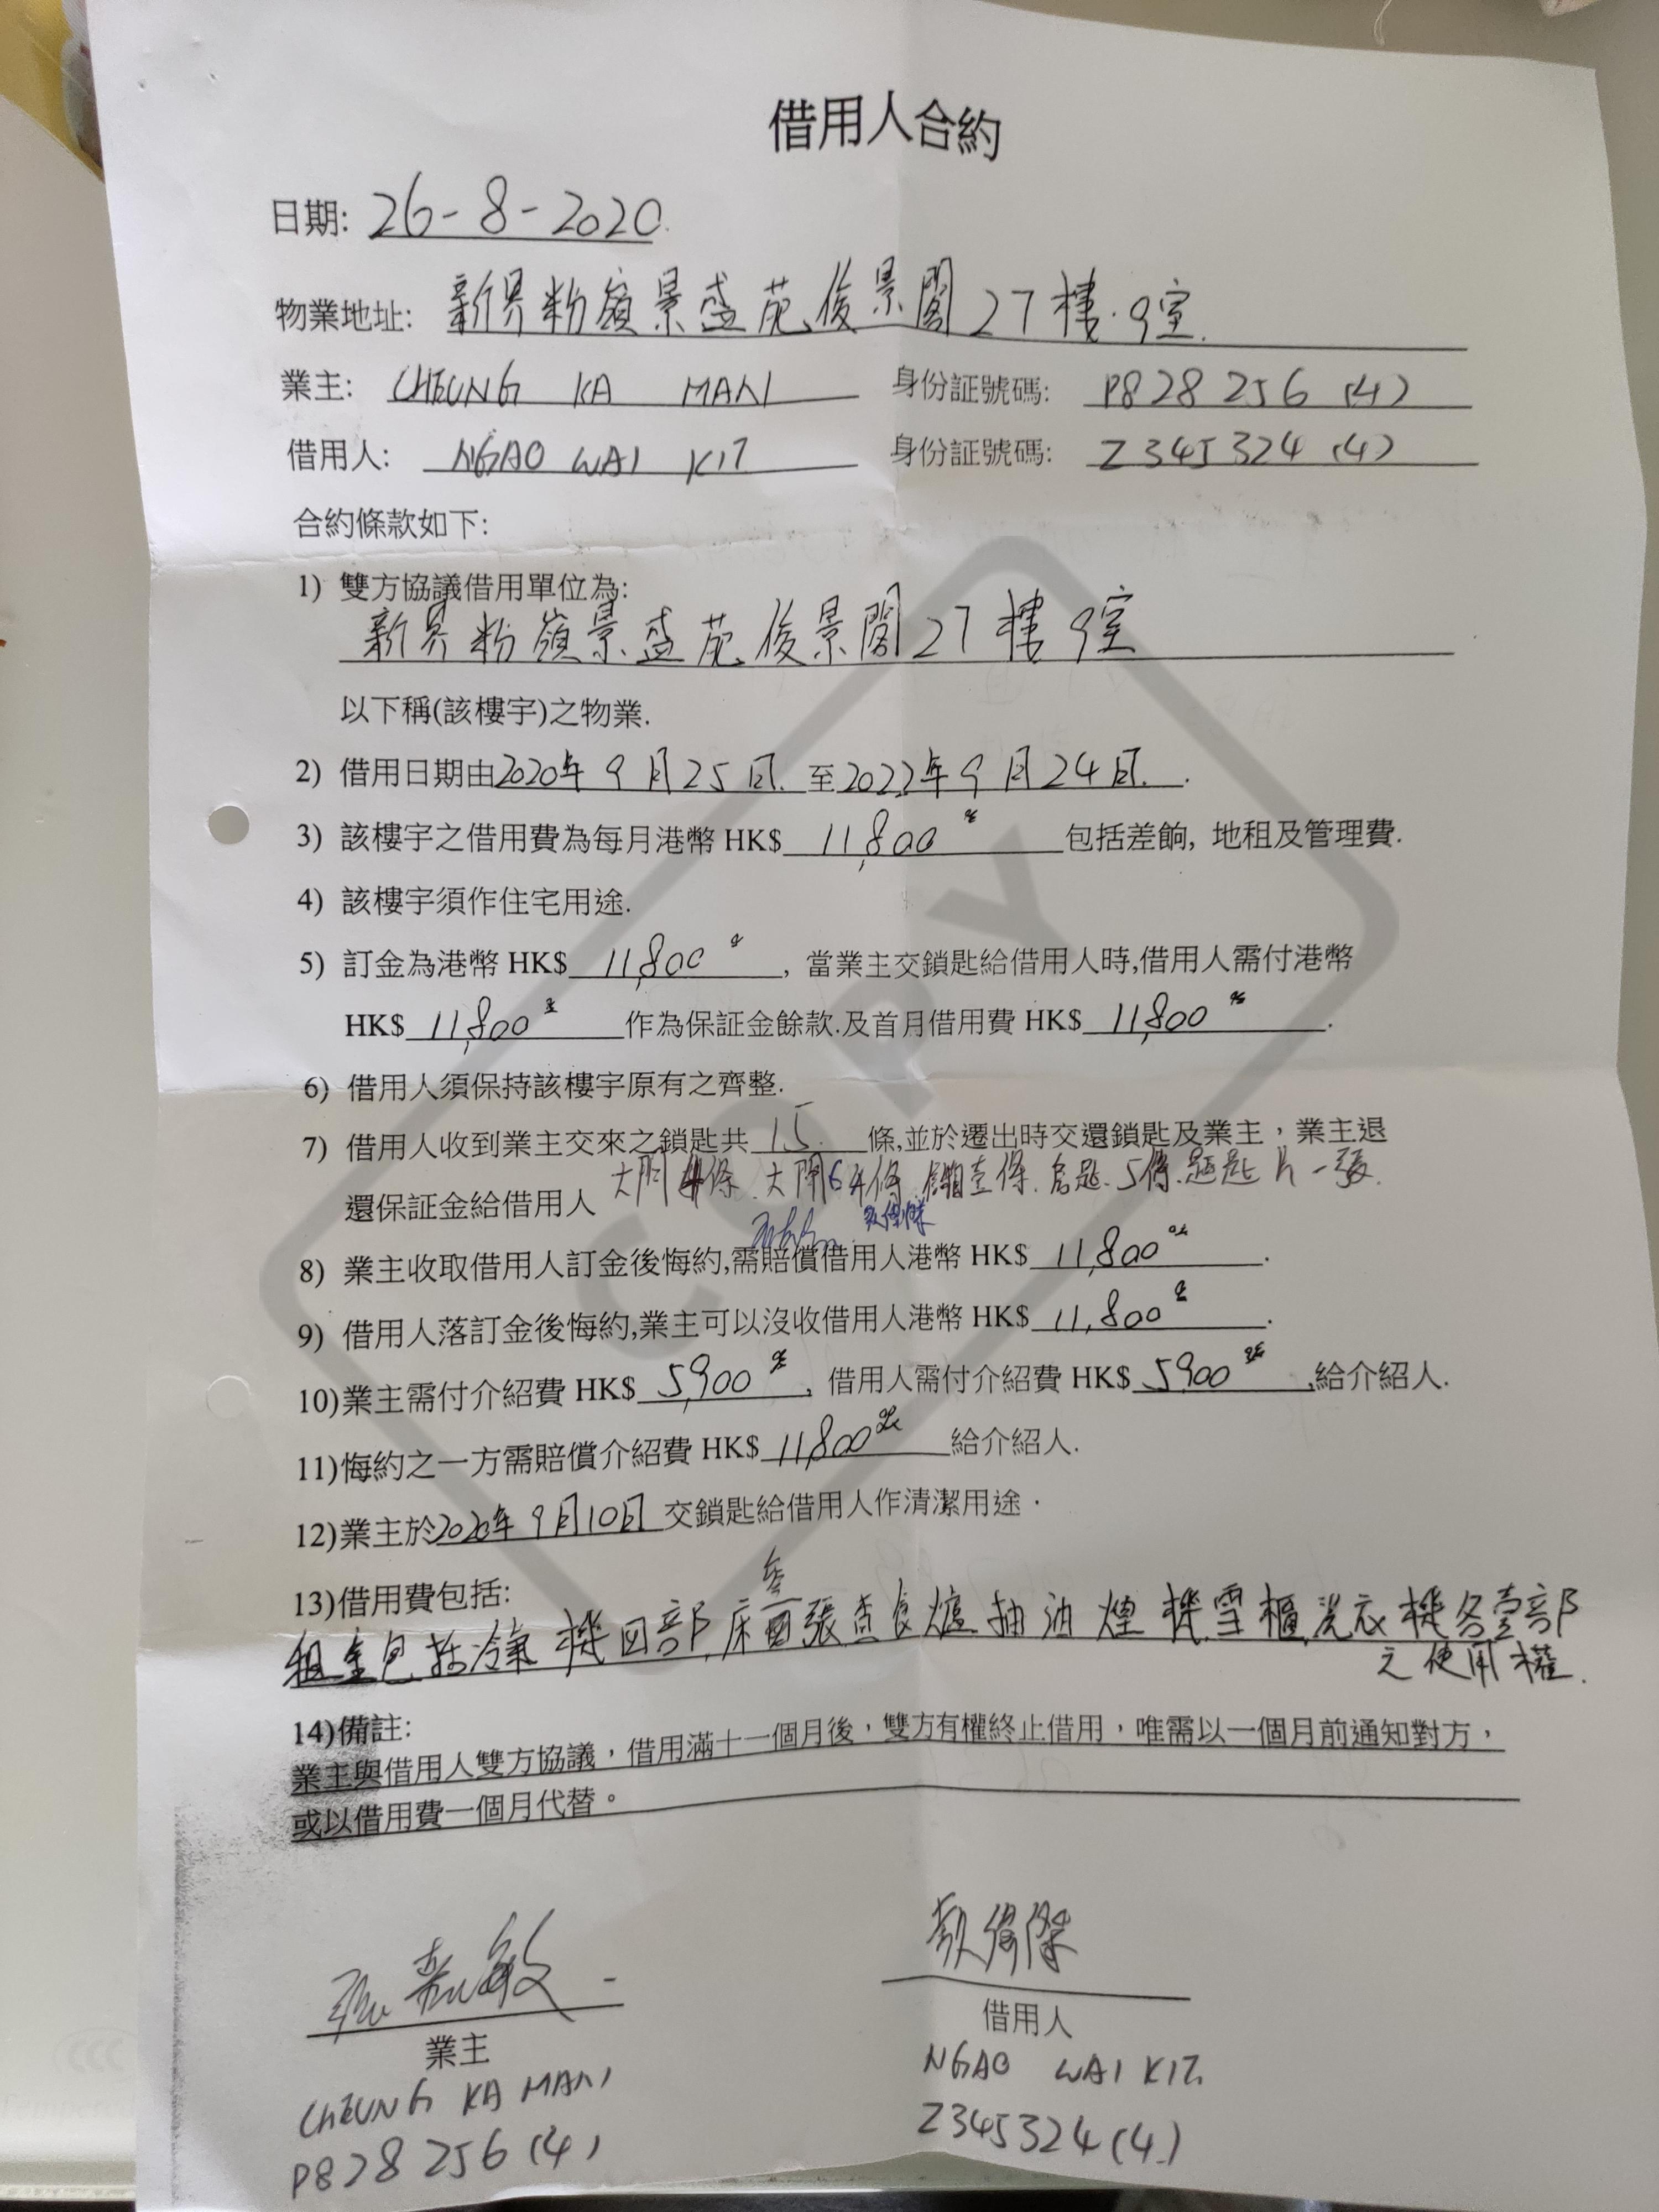 借用人合約
日期: 26-8-2020.
物業地址: 新界粉嶺景盛苑俊景閣27樓.9室.
業主: CHEUNG KA MAN 身份証號碼: P828256(4)
借用人: NGAO WAI KIT 身份証號碼: Z345324(4)
合約條款如下:
1) 雙方協議借用單位為:
新界粉嶺景盛苑俊景閣27樓9室
以下稱(該樓宇)之物業.
2) 借用日期由2020年9月25日.至2022年9月24日..
3) 該樓宇之借用費為每月港幣 HK$ 11,800 包括差餉, 地租及管理費.
4) 該樓宇須作住宅用途.
5) 訂金為港幣 HK$ 11,800, 當業主交鎖匙給借用人時,借用人需付港幣
HK$ 11,800 作為保証金餘款.及首月借用費 HK$ 11,800.
6) 借用人須保持該樓宇原有之齊整.
7) 借用人收到業主交來之鎖匙共 15 條,並於遷出時交還鎖匙及業主，業主退
還保証金給借用人 大門 條.大閘 條 壹條.房匙.5條. 匙片一張.
8) 業主收取借用人訂金後悔約,需賠償借用人港幣 HK$ 11,800.
9) 借用人落訂金後悔約,業主可以沒收借用人港幣 HK$ 11,800.
10)業主需付介紹費 HK$ 5,900, 借用人需付介紹費 HK$ 5,900,給介紹人.
11)悔約之一方需賠償介紹費 HK$ 11,800 給介紹人.
12)業主於2020年9月10日 交鎖匙給借用人作清潔用途.
13)借用費包括:
租金包括冷氣機四部,床 張煮食爐抽油煙機雪櫃,洗衣機各壹部
之使用權.
14)備註:
業主與借用人雙方協議，借用滿十一個月後，雙方有權終止借用，唯需以一個月前通知對方，
或以借用費一個月代替。
COPY
張嘉敏 敖偉傑
業主 借用人
CHEUNG KA MAN NGAO WAI KIT
P828256(4) Z345324(4)